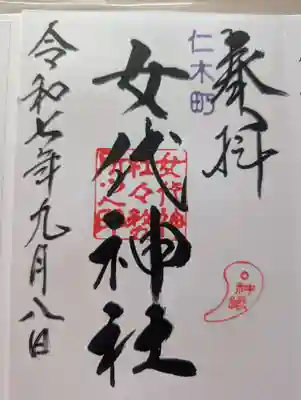 奉拝
仁木町
女代神社
令和七年九月八日